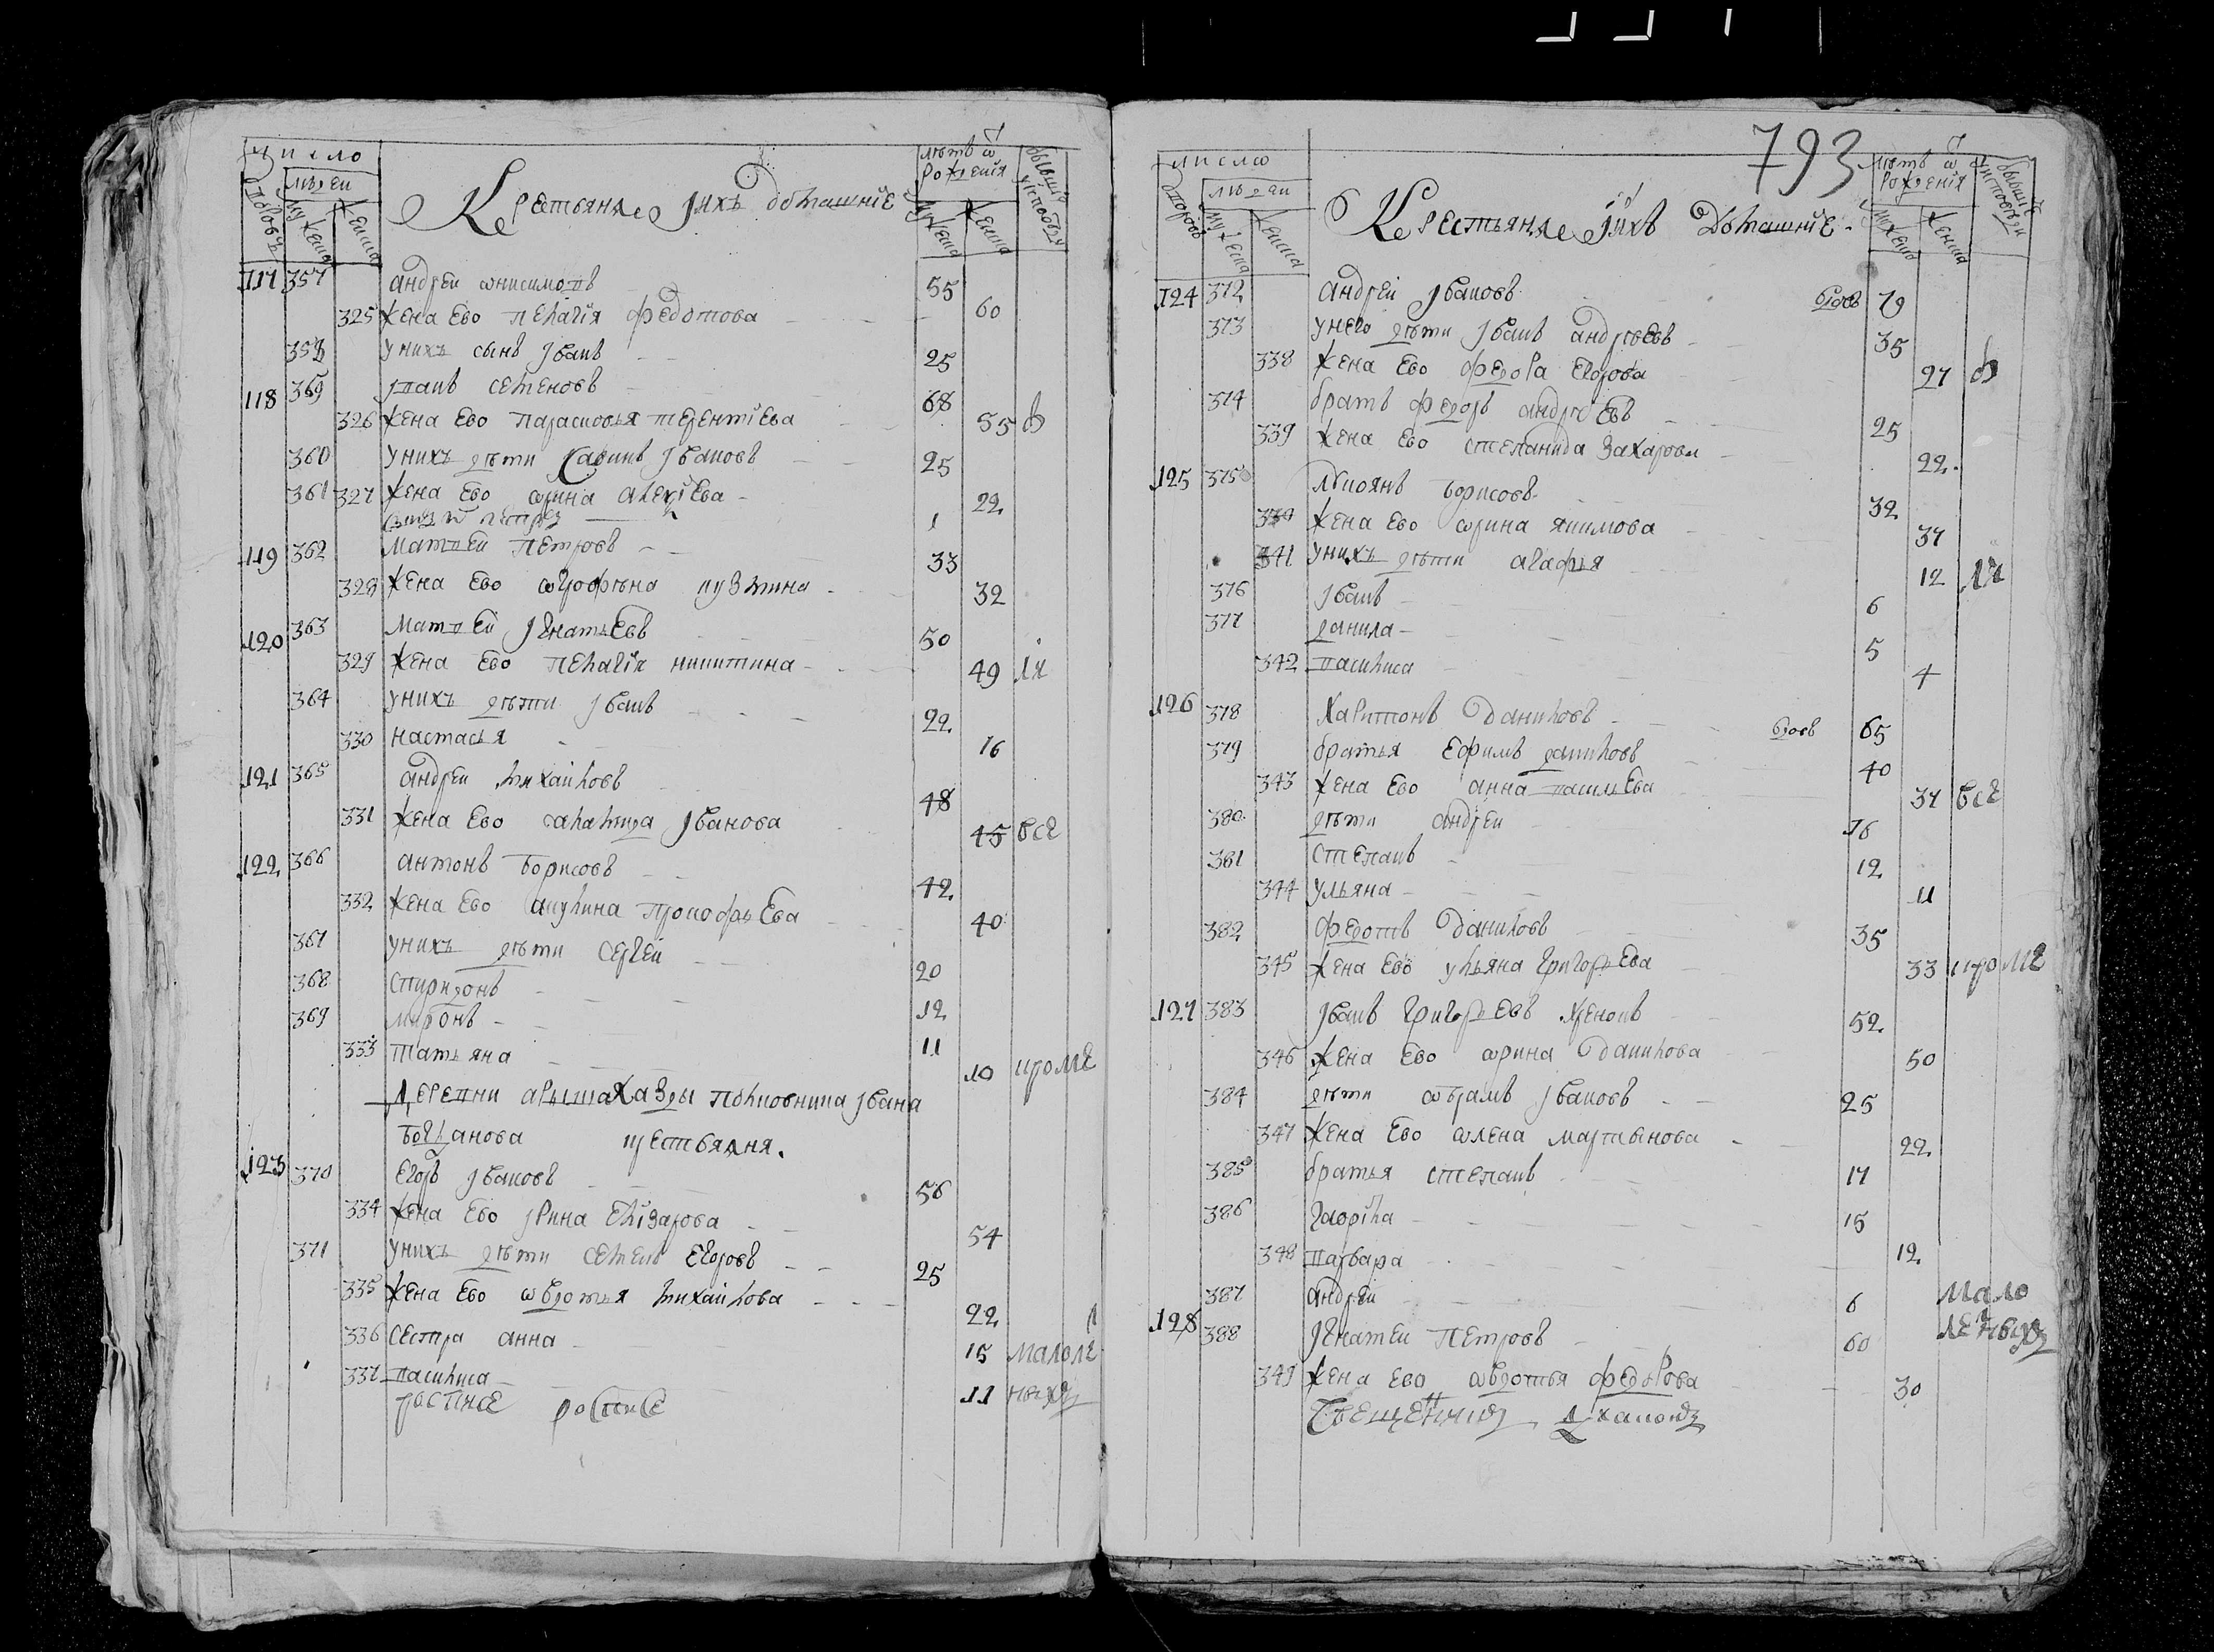 число
людеи
дворовъ
мужеска
женска
Крестьяне іихъ домашніе
лѣтъ ѿ
рожденія
мужеска
женска
117 357 андреи ѡнисимовъ 55
325 жена ево пелагія федотова 60
358 унихъ сынъ іванъ 25
118 359 іванъ семеновъ 68
326 жена ево парасковья терентіева 55
360 унихъ дѣти савинъ івановъ 25
361 327 жена ево ѡрина алексіева 22
1
119 362 матвеи петровъ 33
328 жена ево ѡгрофѣна кузмина 32
120 363 матвеи игнатьевъ 50
329 жена ево пелагія никитина 49
364 унихъ дѣти іванъ 22
330 настасья 16
121 365 андреи михаиловъ 48
331 жена ево иванова 45 все
122 366 антонъ борисовъ 42
332 жена ево акулина прокофьева 40
367 унихъ дѣти сергеи 20
368 спиридонъ 12
369 миронъ 11
333 татьяна 10 кроме
деревни полковника івана
богданова крестьяня.
123 370 егоръ івановъ 56
334 жена ево ірина елізарова 54
371 унихъ дѣти семенъ егоровъ 25
335 жена ево ѡвдотья михаилова 22
336 сестра анна 15 малоле
337 василиса 11
793
число
людеи
дворовъ
мужеска
женска
Крестьяне іихъ домашніе
лѣтъ ѿ
рожденія
мужеска
женска
124 372 андреи івановъ вдовъ 70
373 унего дѣти іванъ андреевъ 35
338 жена ево федора егорова 27
374 братъ федоръ андреевъ 25
339 жена ево степанида захарова 22
125 375 лукоянъ борисовъ 32
330 жена ево ѡрина якимова 37
341 унихъ дѣти агафья 12
376 іванъ 6
377 данила 5
342 василиса 4
126 378 харитонъ даниловъ вдовъ 65
379 братья ефимъ даниловъ 40
343 жена ево анна васильева 37 все
380 дѣти андреи 16
381 степанъ 12
344 ульяна 11
382 федотъ даниловъ 35
345 жена ево ульяна григорьева 33 кроме
127 383 іванъ григорьевъ хреновъ 52
346 жена ево ѡрина данилова 50
384 дѣти ѡврамъ івановъ 25
347 жена ево ѡлена мартынова 22
385 братья степанъ 17
386 гаврила 15
348 варвара 12
387 андреи 6 мало
128 388 ігнатеи петровъ 60
349 жена ево ѡвдотья федорова 30